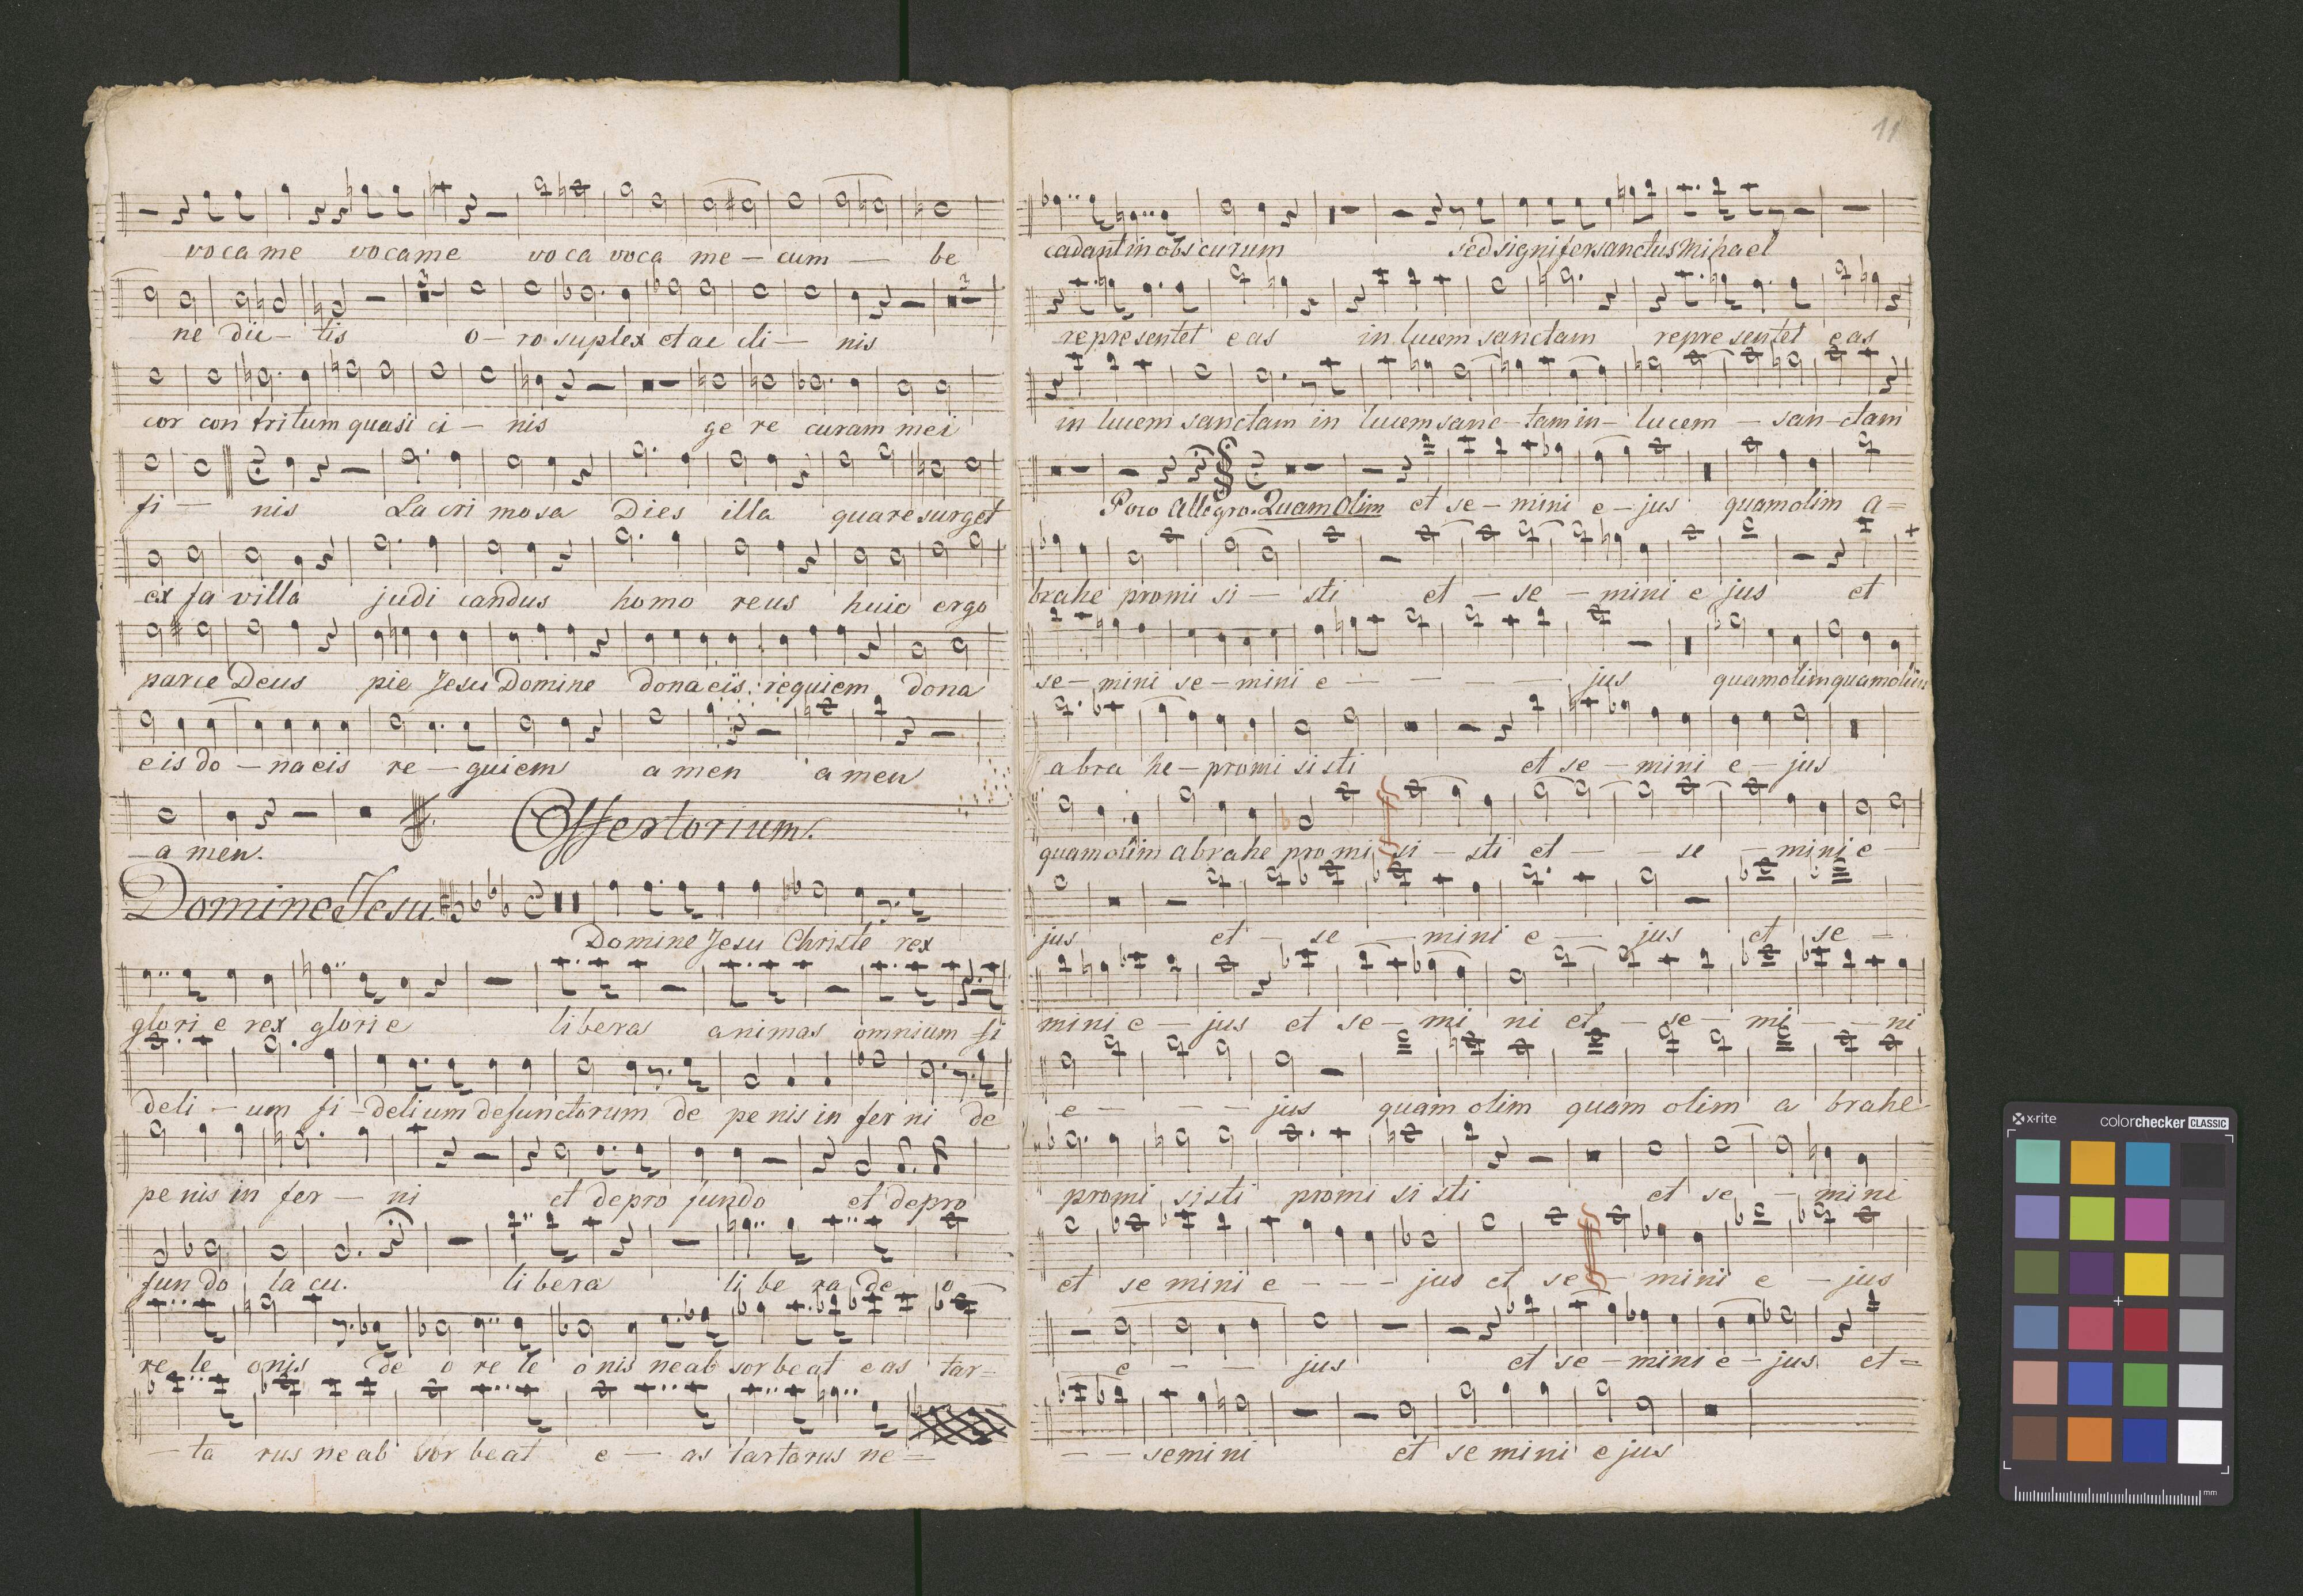 vo ca me vo ca me vo ca voca me - cum - be
ne dic - tis o - ro suplex et ac cli - nis
cor con tritum quasi ci - nis ge re curam mei
fi - nis Lacri mosa Dies illa qua resurget
ex fa villa judi candus homo reus huic ergo
parce Deus pie Jesu Domine dona eis requiem dona
eis do - na eis re - quiem a men a men
a men. Offertorium.
Domine Jesu.
Domine Jesu Christe rex
glori e rex glori e liberas animas omnium fi
deli - um fi - delium defunctorum de pe nis in fer ni de
pe nis in fer - ni et de pro fundo et de pro
fun do la cu. li bera li be ra de o
re le o nis de o re le o nis ne ab sor be at e as tar =
- ta rus ne ab sor be at e - as tartarus ne =
11
cadant in obscurum sed signifer sanctus Mihael
representet e as in lucem sanctam repre sentet e as
in lucem sanctam in lucem sanc - tam in - lucem - san - ctam
Poco Allegro. Quam Olim et se - mini e - jus quam olim a =
brahe promi si - sti et - se - mini e jus et
se - mini se - mini e - - - jus quam olim quam olim
abra he - promi sisti et se - mini e - jus
quam olim abrahe promi si - sti et - - se - mini e -
jus et - se - mini e - jus et se -
mini e - jus et se - mi ni et - se - mi - - ni
e - - - jus quam olim quam olim a brahe
promi sisti promi si sti et se - mini
et se mini e - - - jus et se - mini e - jus
e - - - jus et se - mini e - jus et =
- - semi ni et se mini e jus
x-rite colorchecker CLASSIC
mm